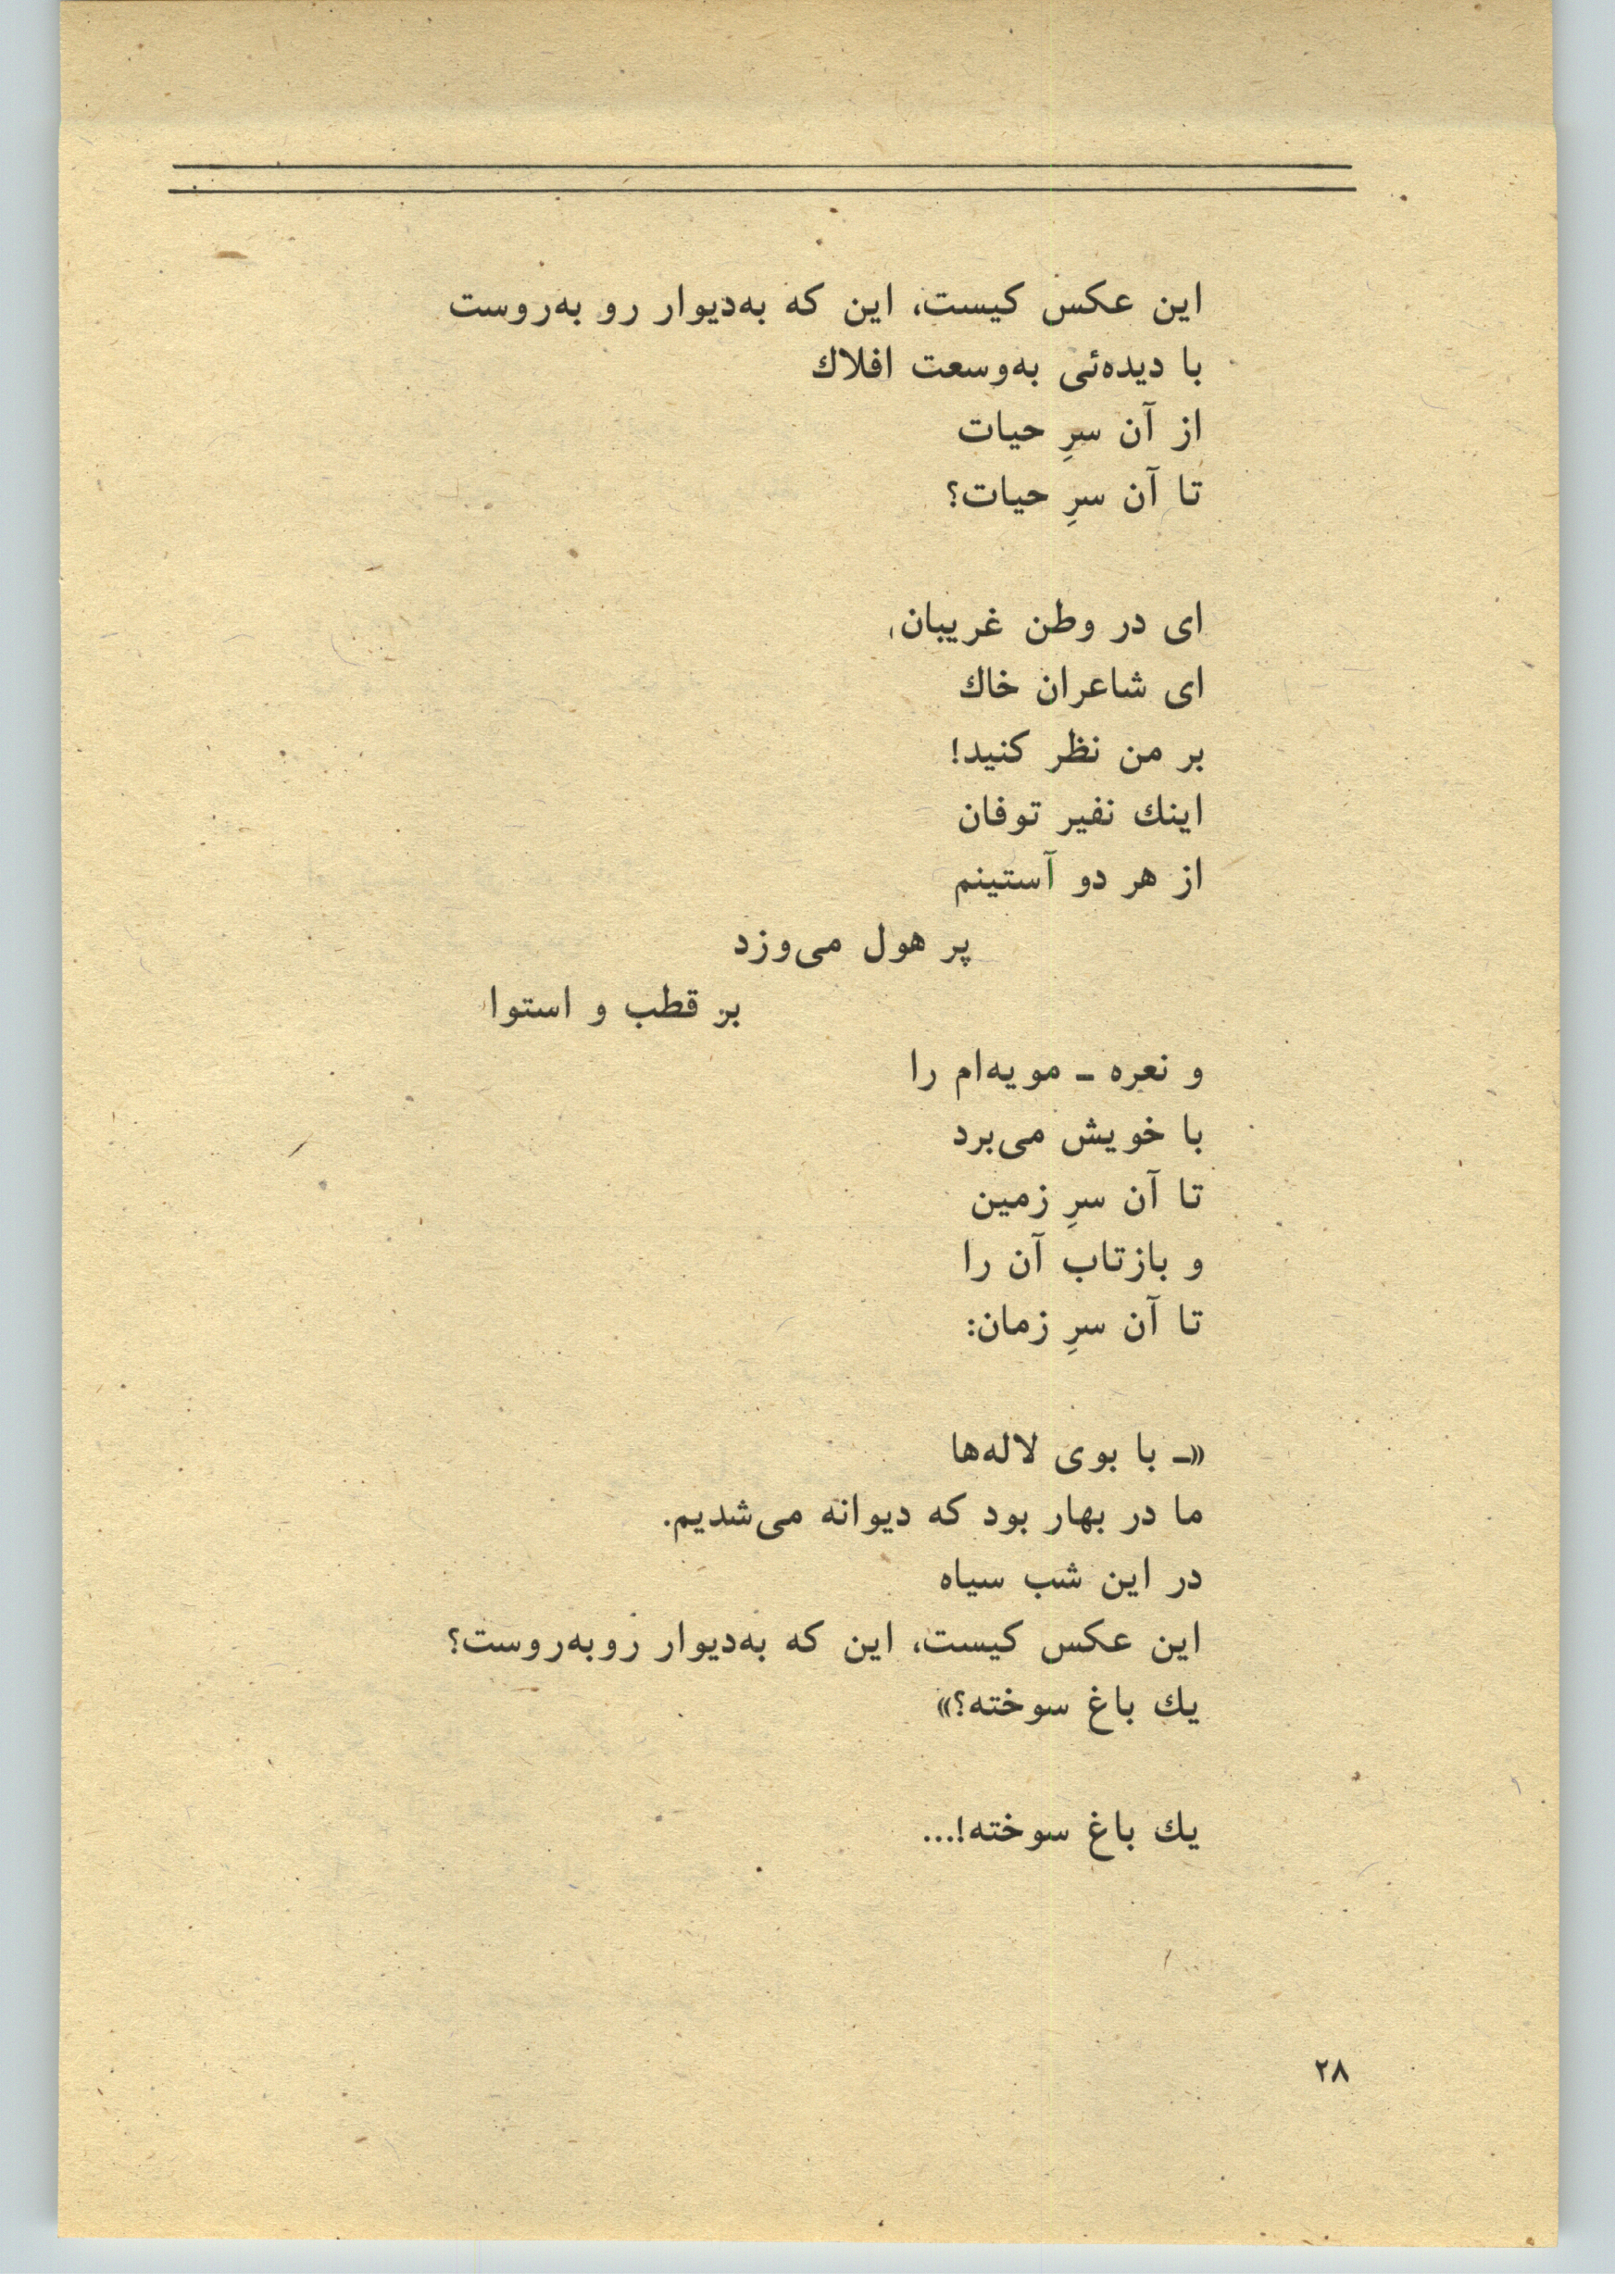 این عکس کیست، این که به‌دیوار رو به‌روست
با دیده‌ئی به‌وسعت افلاك
از آن سرِ حیات
تا آن سرِ حیات؟
ای در وطن غریبان،
ای شاعران خاك
بر من نظر کنید!
اینك نفیر توفان
از هر دو آستینم
پر هول می‌وزد
بر قطب و استوا
و نعره ـ مویه‌ام را
با خویش می‌برد
تا آن سرِ زمین
و بازتاب آن را
تا آن سرِ زمان:
«ـ با بوی لاله‌ها
ما در بهار بود که دیوانه می‌شدیم.
در این شب سیاه
این عکس کیست، این که به‌دیوار روبه‌روست؟
یك باغ سوخته؟»
یك باغ سوخته!...
۲۸